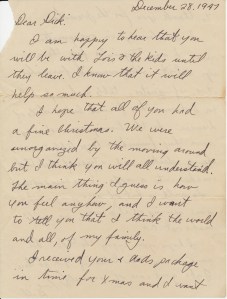 December 28, 1947
Dear Dick:
I am happy to hear that you
will be with Lois & the kids until
they leave. I know that it will
help so much.
I hope that all of you had
a fine Christmas. We were
unorganized by the moving around
but I think you will all understand.
The main thing I guess is how
you feel anyhow, and I want
to tell you that I think the world
and all, of my family.
I received your & dads, package
in time for Xmas and I want